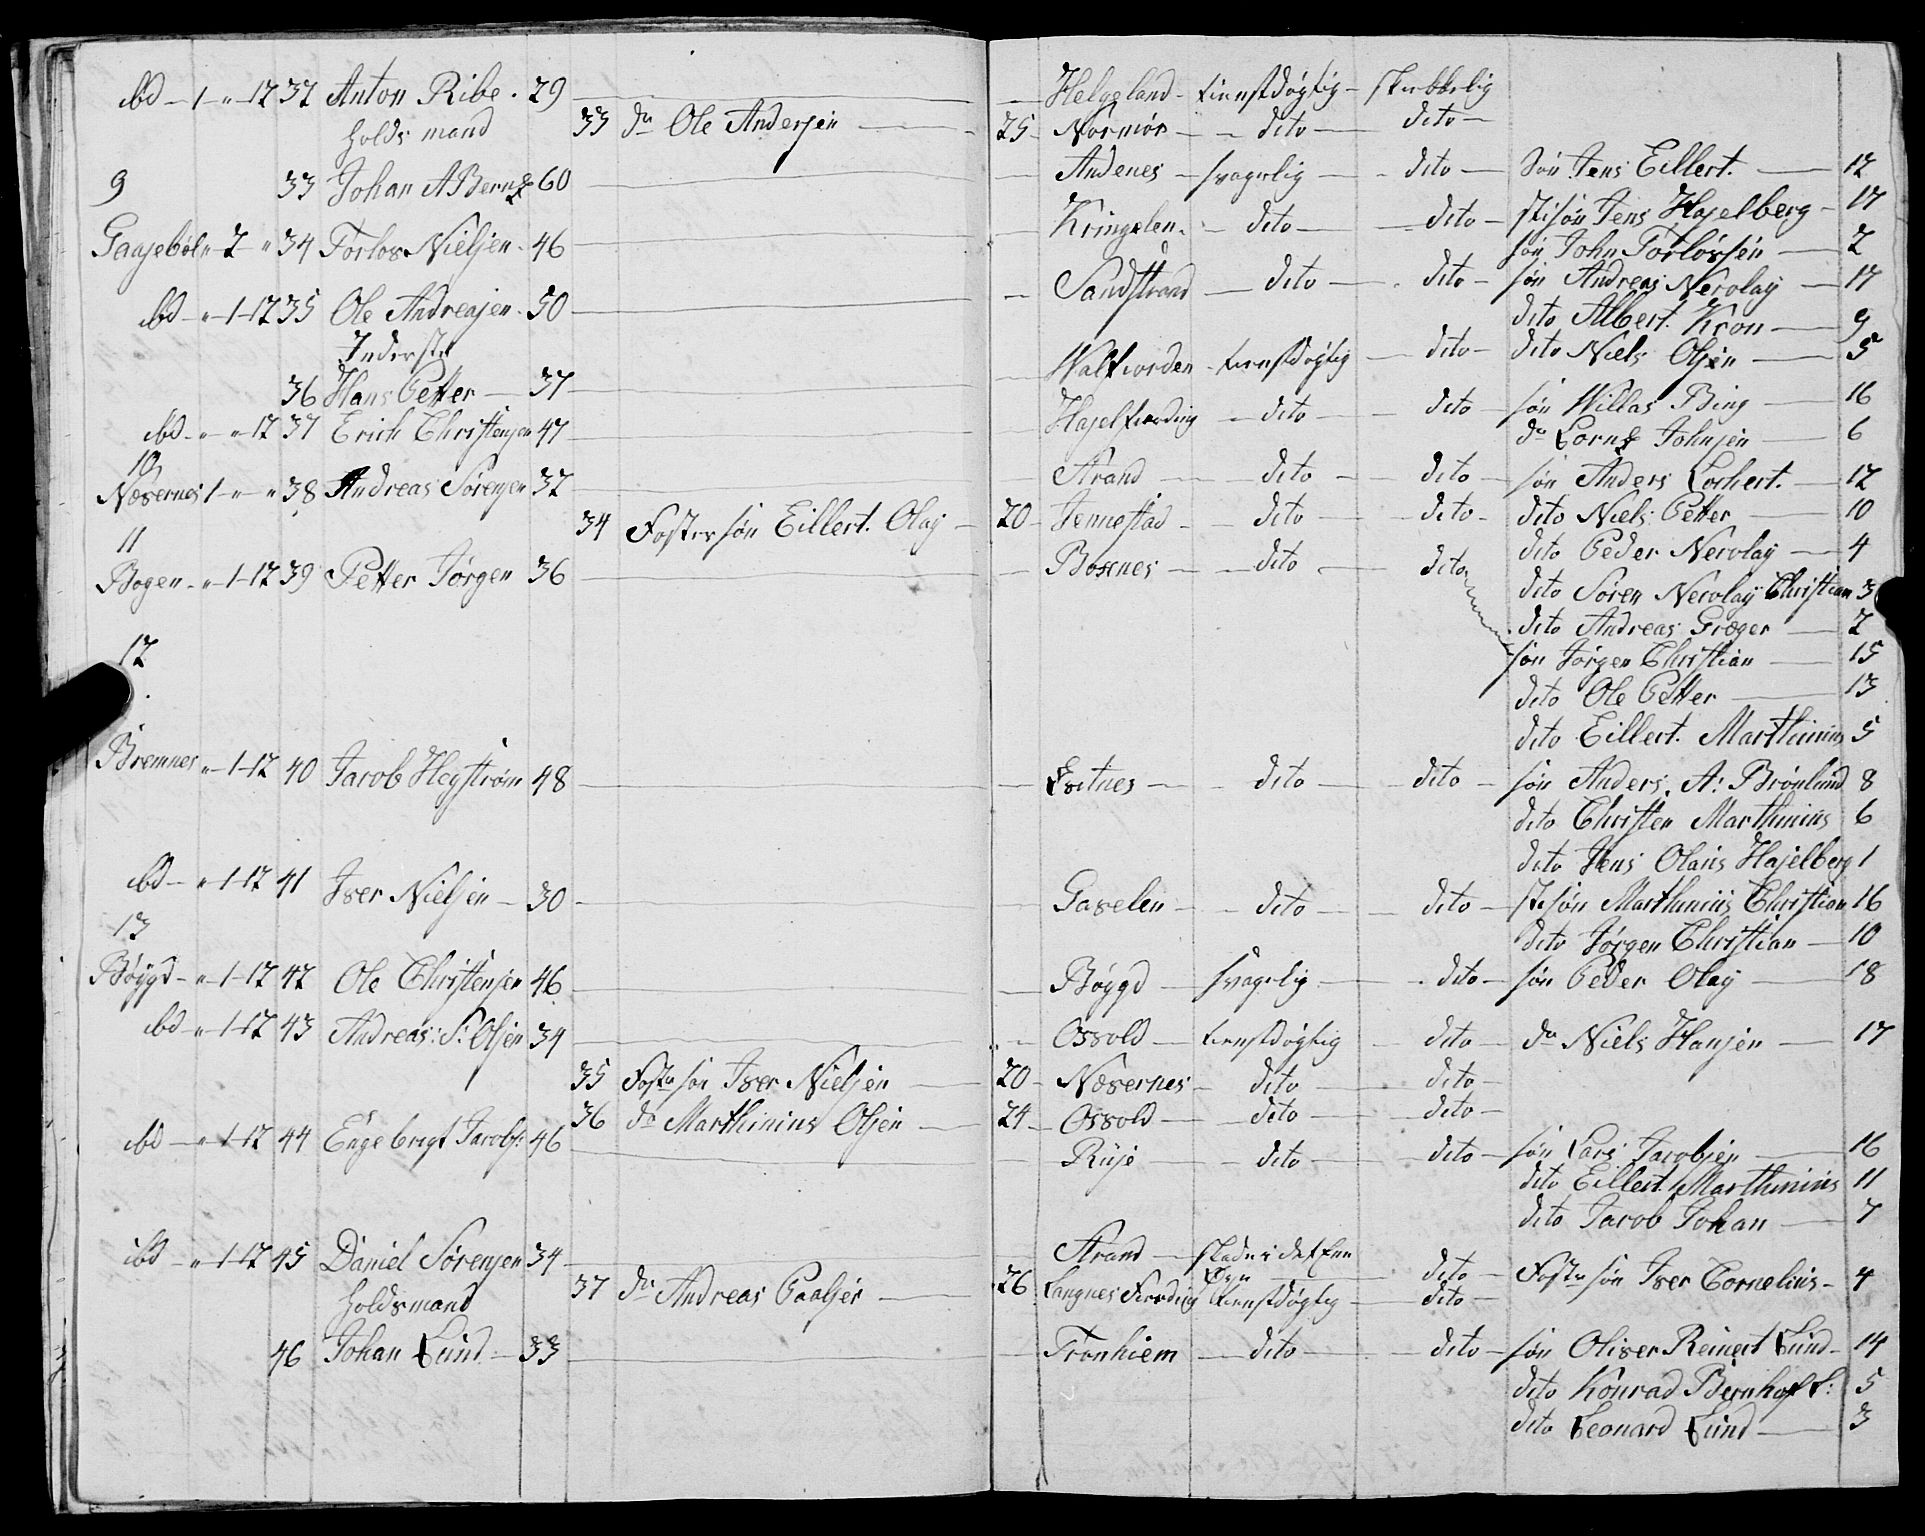 ibd — 1 „ — 12 32 Anton Ribe . 29 — Helgeland — tienstdøgtig — skikkelig
holdsmand 33 do Ole Andersen — 25 — Normør — dito — dito —
9 33 Johan A Berntz 60 — Andenes — svagelig — dito — Søn Jens Eillert. — 12
Gaasebøl „ 2 „ 34 Torlof Nielsen . 46 — Kringelen . — dito — dito — stifsøn Jens Hagelberg — 17
søn John Torløfsen — 2
ibd — „ — 1 — 12 35 Ole Andreasen . 50 — Sandstrand — dito — dito — søn Andreas Nicolay — 17
dito Albert Kron — 9
Inderste
36 Hans Petter — 37 — Walfiorden — tienstdøgtig — dito — dito Niels Olsen — 5
ibd — „ — „ 12 37 Erich Christensen 47 — Hasselfiording — dito — dito — søn Willas Bing — 16
do Corntz Johnsen — 6
10
Næsernes 1 — „ — „ 38 Andreas Sørensen 32 — Strand — dito — dito — søn Anders Lorhert. — 12
34 Fostersøn Eillert. Olay — 20 — Jennestad — dito — dito — dito Niels Petter — 10
11
Bogen — „ — 1 — 12 39 Petter Jørgen 36 — Boxnes — dito — dito dito Peder Nicolay — 4
dito Søren Nicolay Christian 3
dito Andreas Græger — 2
12
søn Jørgen Christian — 15
dito Ole Petter — 13
dito Eillert. Marthinius 5
Bremnes „ — 1 — 12 40 Jacob Hegstrøm 48 — Lotnes — dito — dito — søn Anders. A: Brønlund 8
dito Christen Marthinius 6
dito Jens Olaus Hagelberg 1
ibd — „ 1 — 12 41 Iver Nielsen — 30 — Gavelen — dito — dito — stifsøn Marthinius Christian 16
dito Jørgen Christian — 10
13
Bøygd — „ 1 — 12 42 Ole Christensen 46 — Bøygd — svagelig — dito — søn Peder Olay — 18
ibd „ — 1 — 12 43 Andreas: S: Olsen 34 — Osvold — tienstdøgtig — dito — do Niels Hansen — 17
35 Fostersøn Iver Nielsen — 20 — Næsernes — dito — dito —
36 do Marthinius Olsen — 24 — Osvold — dito — dito —
ibd — „ 1 — 12 44 Engebrigt Jacobs: 46 — Riise — dito — dito — søn Lars Jacobsen — 16
dito Eillert Marthinius 11
dito Jacob Johan — 7
ibd — „ — 1 — 12 45 Daniel Sørensen 34 — Strand — skade i det Een Øye — dito — Fostersøn Iver Cornelius — 4
holdsmand 37 do Andreas Paalsen — 26 Langnes Fiording tienstdøgtig — dito —
46 Johan Lund — 33 — Trønhiem — dito — dito — søn Oliver Reinert Lund — 14
dito Konrad Bernhoft: 5
dito Leonard Lund — 3